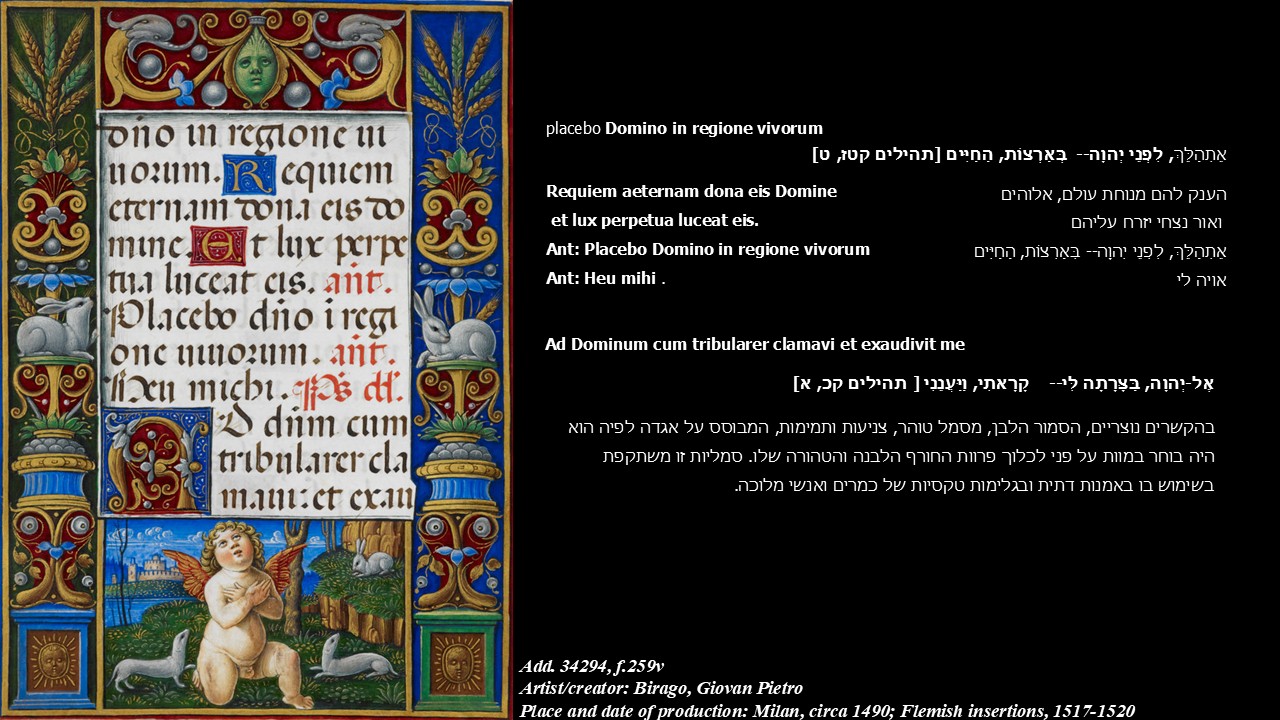 dño in regione ui
uorum. Requiem
eternam dona eis do
mine. Et lux perpe
tua luceat eis. añt.
Placebo dño i regi
one uiuorum. añt.
Heu michi. Ps dd.
AD dūm cum
tribularer cla
maui: et exau
placebo Domino in regione vivorum
אֶתְהַלֵּךְ, לִפְנֵי יְהוָה-- בְּאַרְצוֹת, הַחַיִּים [תהילים קטז, ט]
Requiem aeternam dona eis Domine
הענק להם מנוחת עולם, אלוהים
et lux perpetua luceat eis.
ואור נצחי יזרח עליהם
Ant: Placebo Domino in regione vivorum
אֶתְהַלֵּךְ, לִפְנֵי יְהוָה-- בְּאַרְצוֹת, הַחַיִּים
Ant: Heu mihi .
אויה לי
Ad Dominum cum tribularer clamavi et exaudivit me
אֶל-יְהוָה, בַּצָּרָתָה לִּי-- קָרָאתִי, וַיַּעֲנֵנִי [ תהילים קכ, א]
בהקשרים נוצריים, הסמור הלבן, מסמל טוהר, צניעות ותמימות, המבוסס על אגדה לפיה הוא
היה בוחר במוות על פני לכלוך פרוות החורף הלבנה והטהורה שלו. סמליות זו משתקפת
בשימוש בו באמנות דתית ובגלימות טקסיות של כמרים ואנשי מלוכה.
Add. 34294, f.259v
Artist/creator: Birago, Giovan Pietro
Place and date of production: Milan, circa 1490; Flemish insertions, 1517-1520